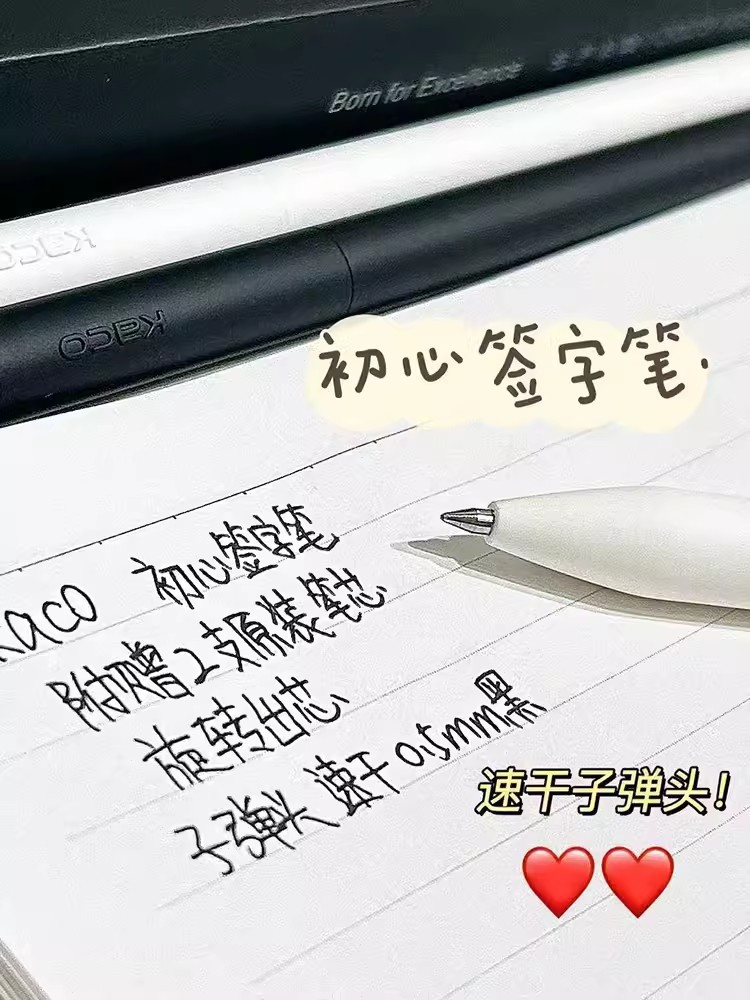 Born for Excellence
Kaco
Kaco
初心签字笔.
Kaco 初心签字笔
附赠2支原装笔芯
旋转出芯
子弹头 速干 0.5mm黑
速干子弹头!